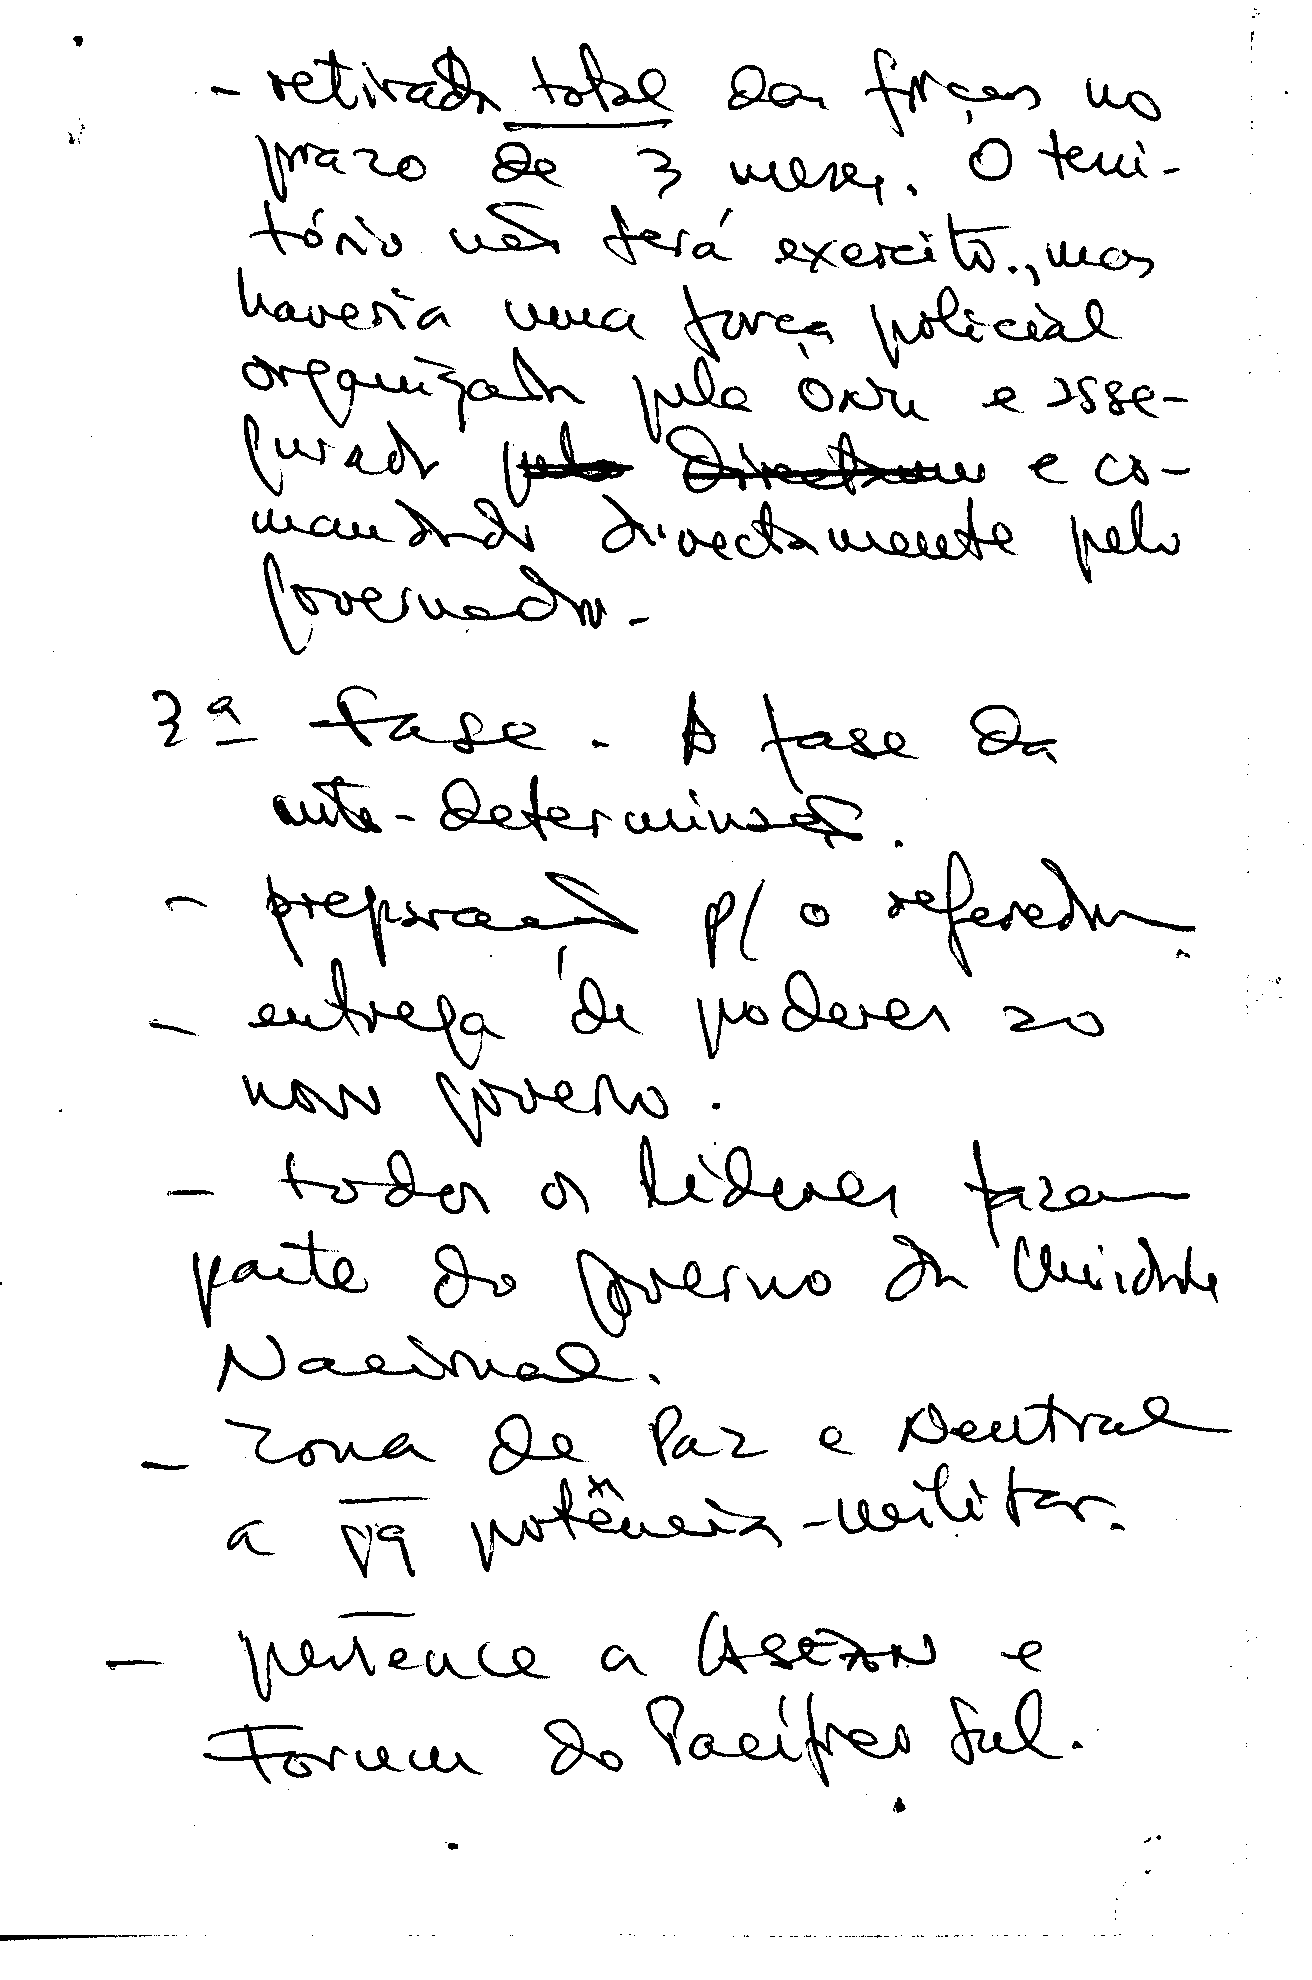 - retirada total das forças no
prazo de 3 meses. O terri-
tório não terá exercito., mas
haveria uma força policial
organizada pela ONU e asse-
gurada pelo directamen e co-
mandada directamente pelo
governador.
3ª fase. A fase da
auto-determinação.
- preparação p/ o referedum
- entrega de poderes ao
novo governo.
- todos os líderes fazem
parte do governo da Unidade
Nacional.
- zona de Paz e Neutral
a potência-militar.
- pertence a ASEAN e
Forum do Pacífico Sul.